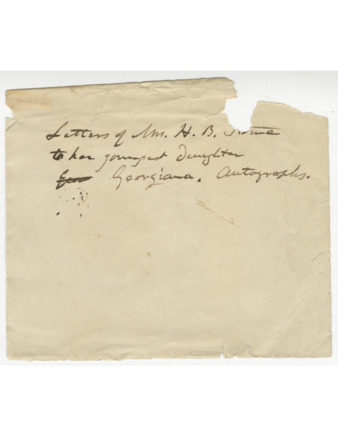 Letters of Mrs. H. B. Stowe
to her youngest daughter
Georgiana. Autographs.